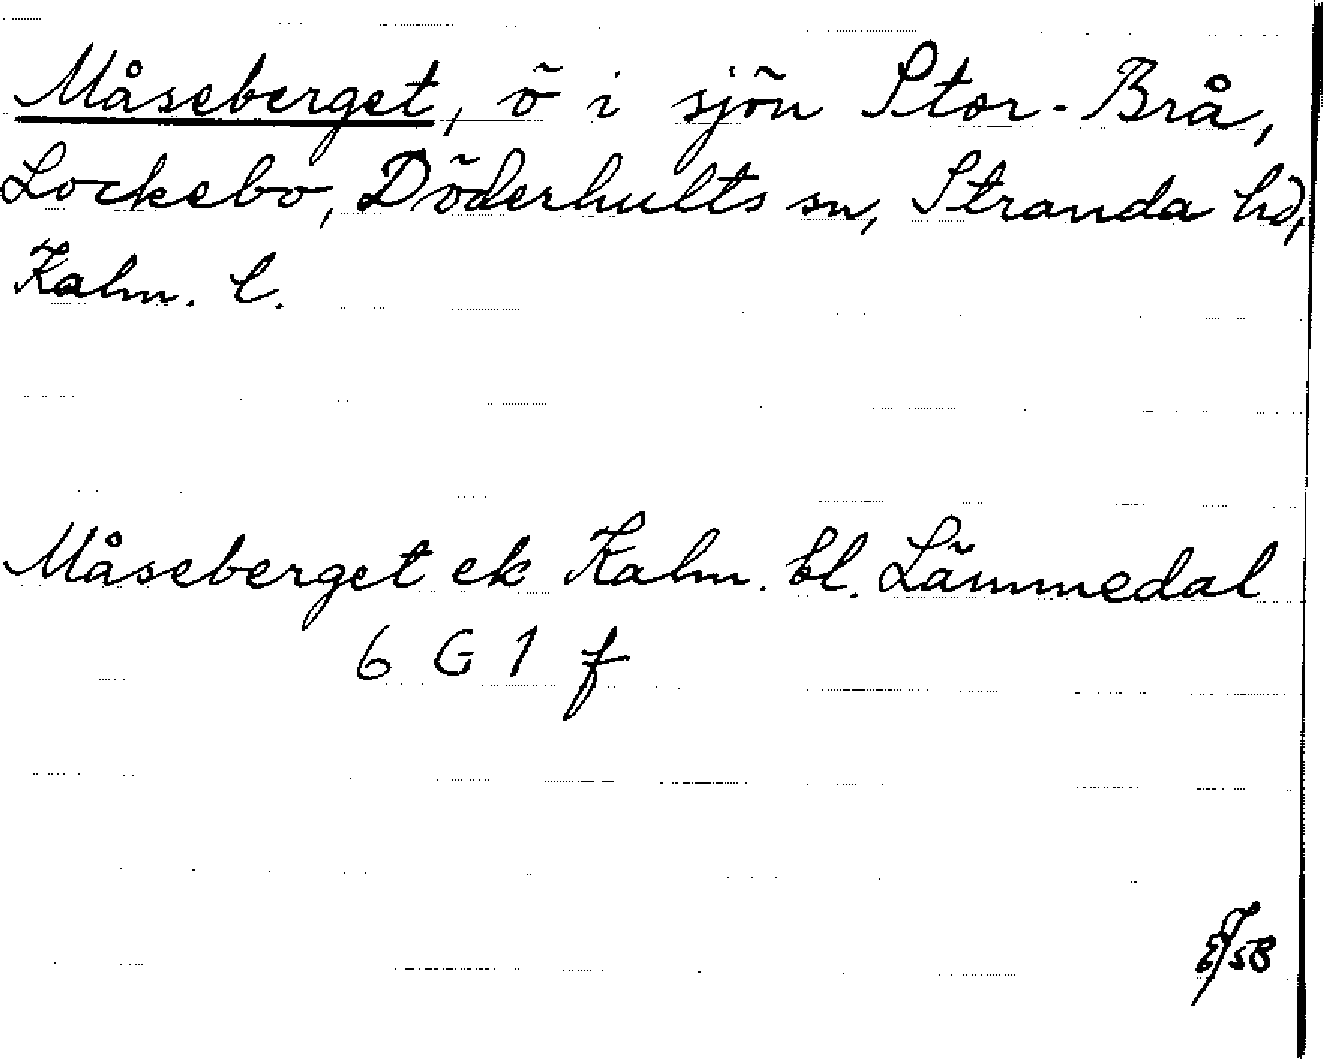 Måseberget, ö i sjön Stor-Brå,
Lockebo, Döderhults sn, Stranda hd,
Kalm. l.
Måseberget ek Kalm. bl. Lämmedal
6 G 1 f